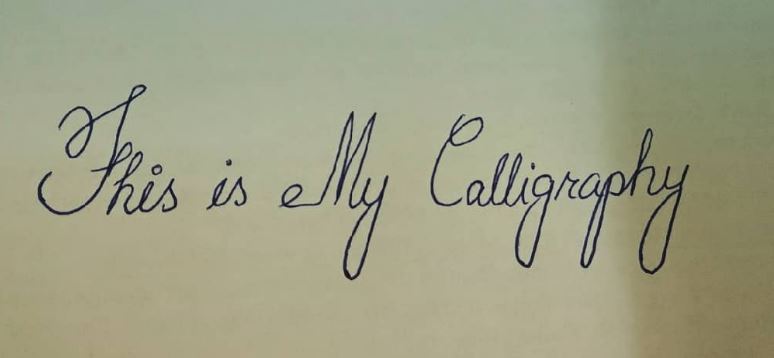 This is My Calligraphy